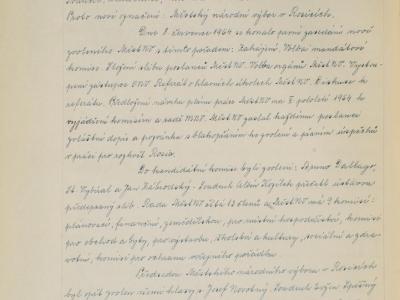 Proto nové označení: Městský národní výbor v Rosicích.
Dne 8. července 1964 se konalo první zasedání nově
zvoleného MěstNV s tímto pořadem: Zahájení, Volba mandátové
komise. Složení slibu poslanců MěstNV. Volba orgánů MěstNV. Vystou-
pení zástupce ONV. Referát o hlavních úkolech MěstNV. Diskuse k
referátu. Předložení návrhu plánu práce MěstNV na II. pololetí 1964 k
vyjádření komisím a radě MNV. MěstNV zaslal každému poslanci
zvláštní dopis a pozvánku s blahopřáním ke zvolení a přáním úspěchů
v práci pro rozkvět Rosic.
Do mandátní komise byli zvoleni:
St. Vybíral a Jan Náhrodský. Soudruh předseda
předepsaný slib. Rada MěstNV čítá 13 členů a MěstNV má 9 komisí:
plánovací, finanční, zemědělskou, pro místní hospodářství, komisi
pro obchod a byty, pro výstavbu, školství a kultury, sociální a zdra-
votní, komisi pro ochranu veřejného pořádku.
Předsedou Městského národního výboru v Rosicích
byl opět zvolen všemi hlasy s. Josef Novotný. Soudruh